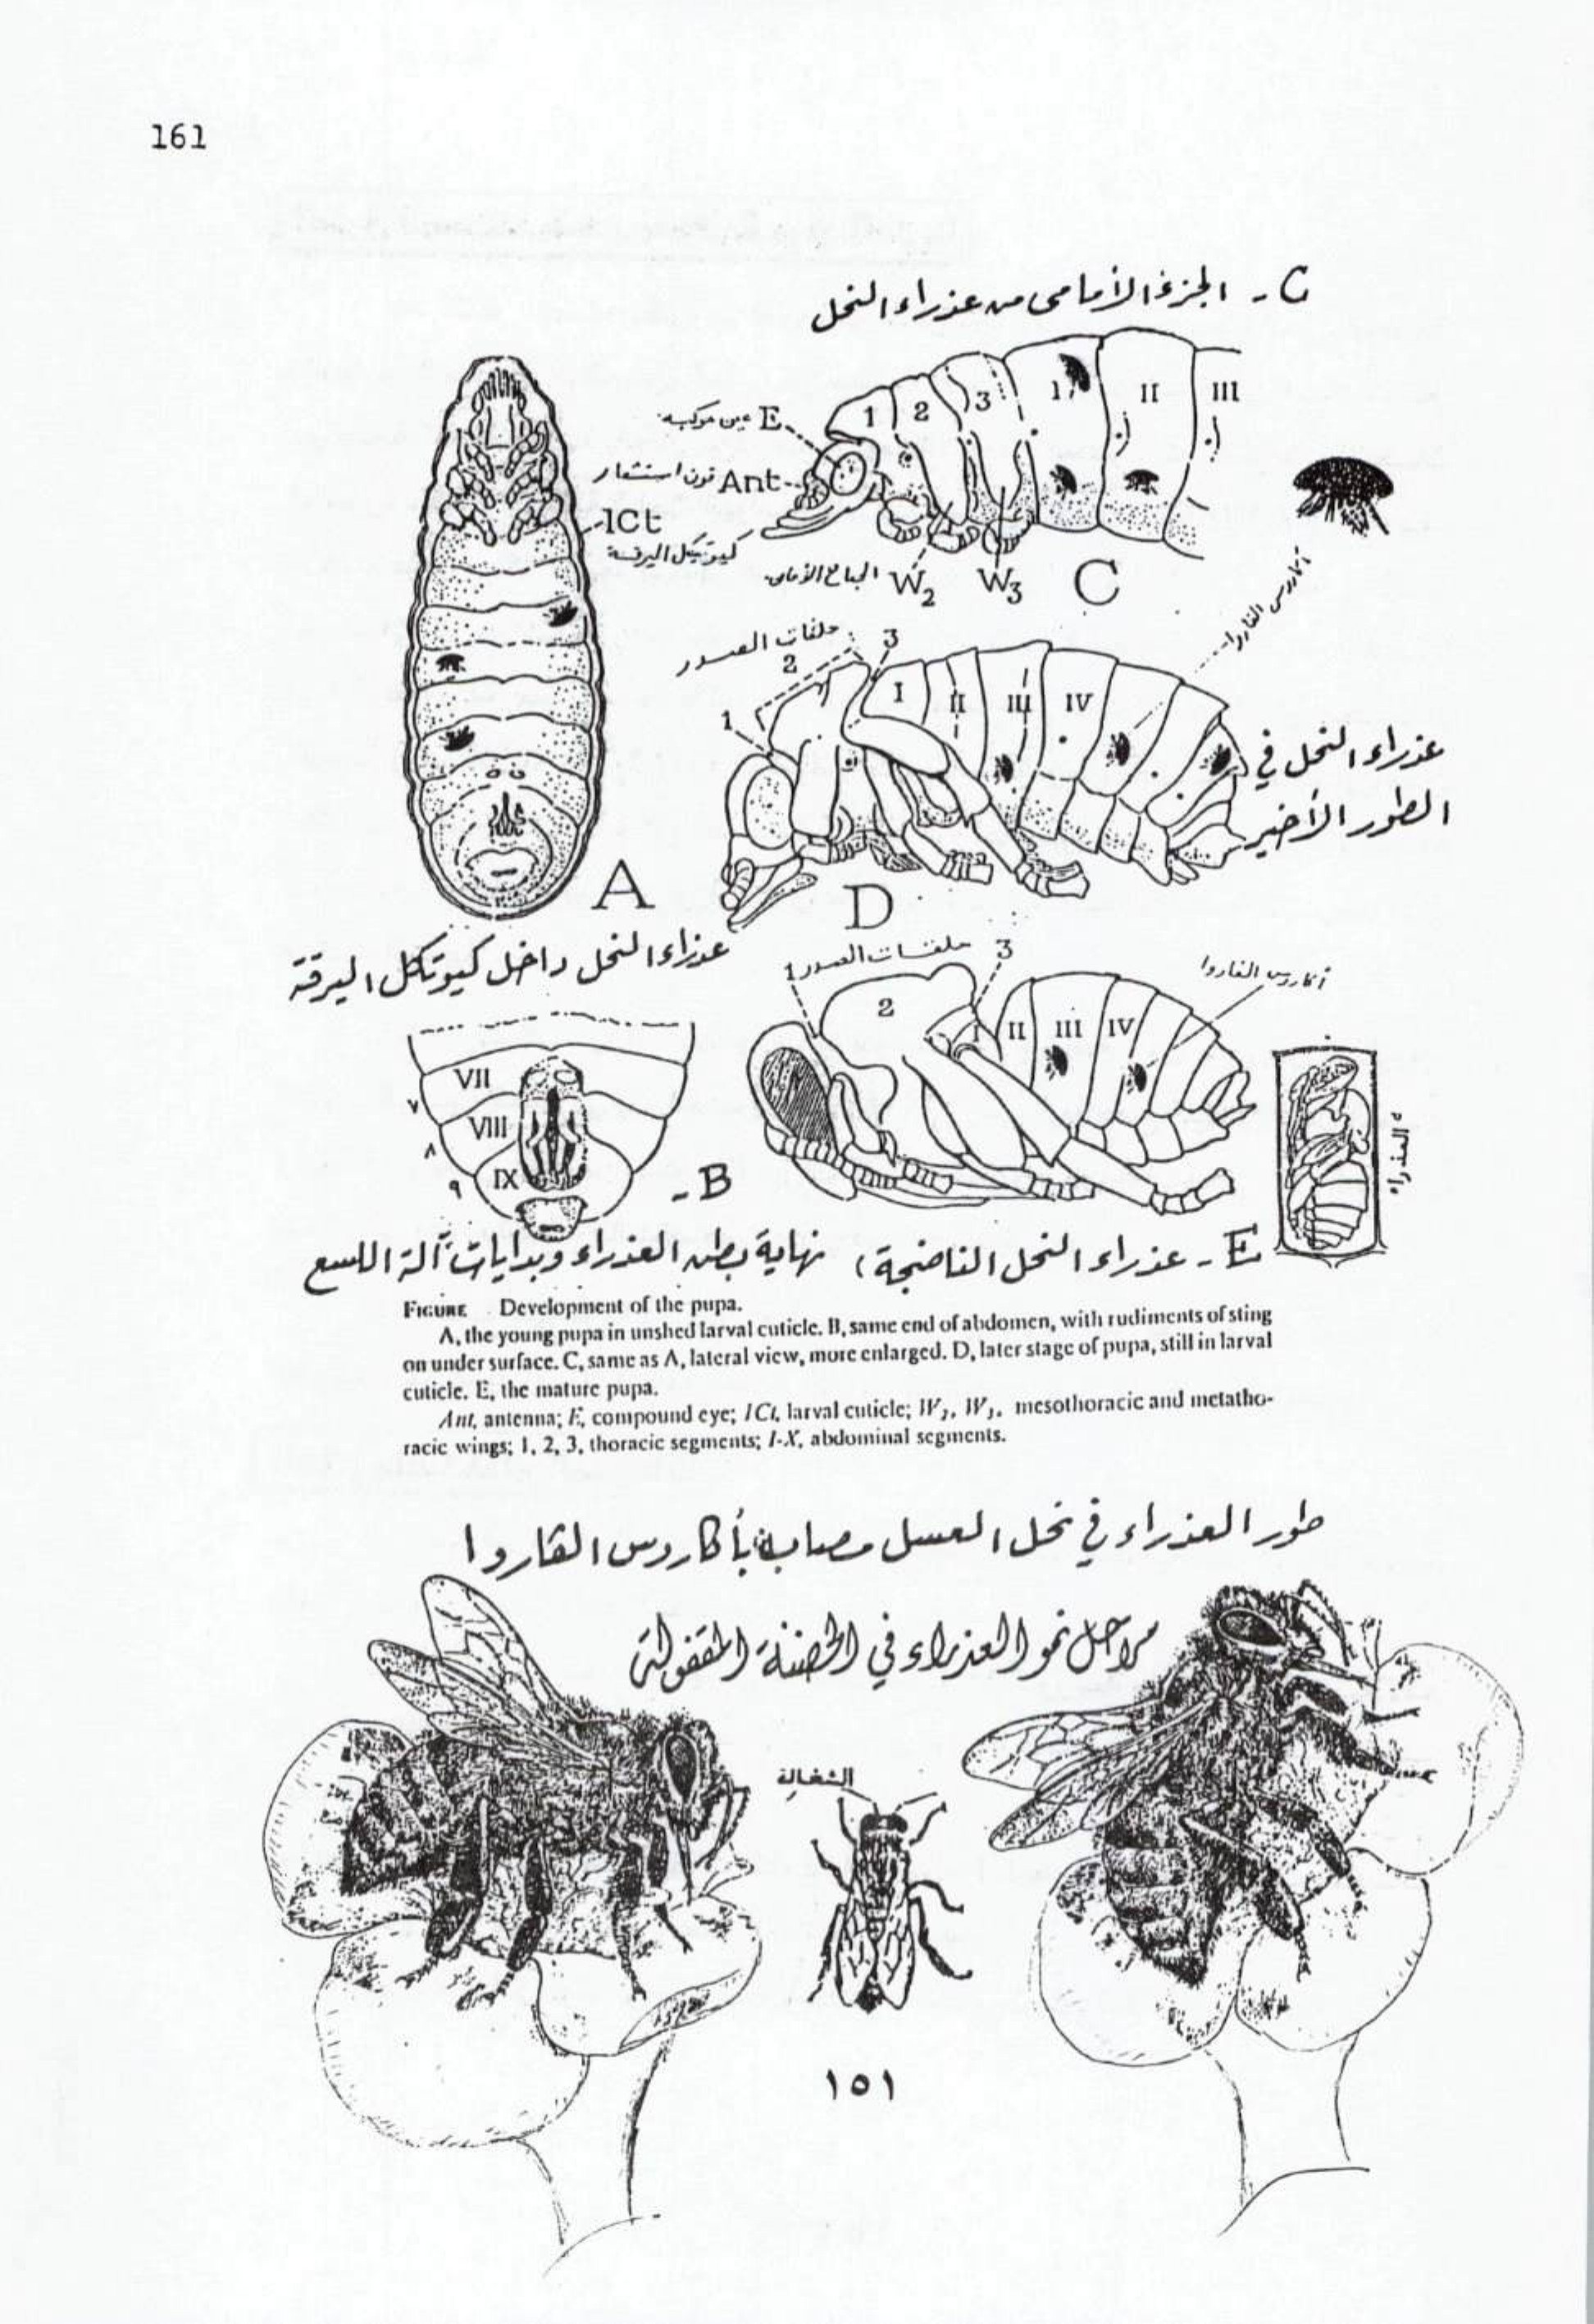 161
C - الجزء الأمامى من عذراء النخل
1 2 3 I II III
عين مركبه E
قرن استشعار Ant
lCt
كيوتيكل اليرقة
الجناح الأمامى W2 W3 C
أكاروس الفاروا
حلقات الصدر
1 2 3 I II III IV
عذراء النحل في
الطور الأخير
A
D
عذراء النحل داخل كيوتكل اليرقة
حلقات الصدر
أكاروس الفاروا
1 2 3 I II III IV
VII
VIII
IX
٧
٨
٩
- B
العذراء
E - عذراء النحل الناضجة، نهاية بطن العذراء وبدايات آلة اللسع
FIGURE Development of the pupa.
A, the young pupa in unshed larval cuticle. B, same end of abdomen, with rudiments of sting
on under surface. C, same as A, lateral view, more enlarged. D, later stage of pupa, still in larval
cuticle. E, the mature pupa.
Ant, antenna; E, compound eye; lCt, larval cuticle; W2, W3, mesothoracic and metatho-
racic wings; 1, 2, 3, thoracic segments; I-X, abdominal segments.
طور العذراء في نحل العسل مصابة بأكاروس الفاروا
مراحل نمو العذراء في الحضنة المقفولة
الشغالة
١٥١